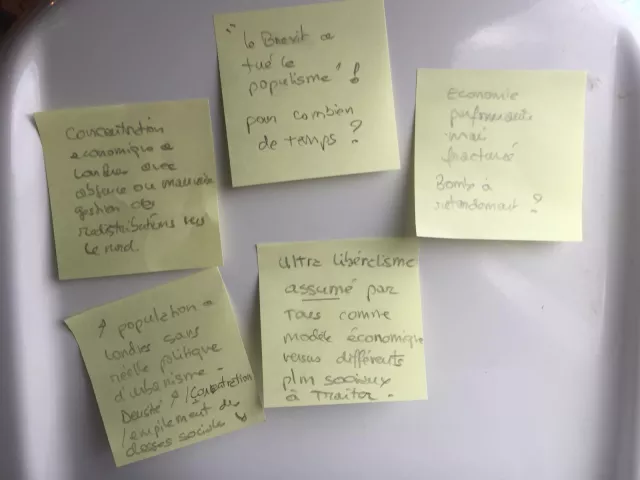 "le Brexit a
tué le
populisme" !
pour combien
de temps ?
Concentration
economique a
Londres avec
absence ou mauvaise
gestion des
redistributions vers
le nord.
Economie
performante
mais
fracturée
Bombe à
retardement ?
↑ population a
Londres sans
réelle politique
d'urbanisme -
Densité ↑ / concentration
/ empilement de
classes sociales
Ultra libéralisme
assumé par
Tous comme
modèle économique
versus différents
plm sociaux
à Traiter -